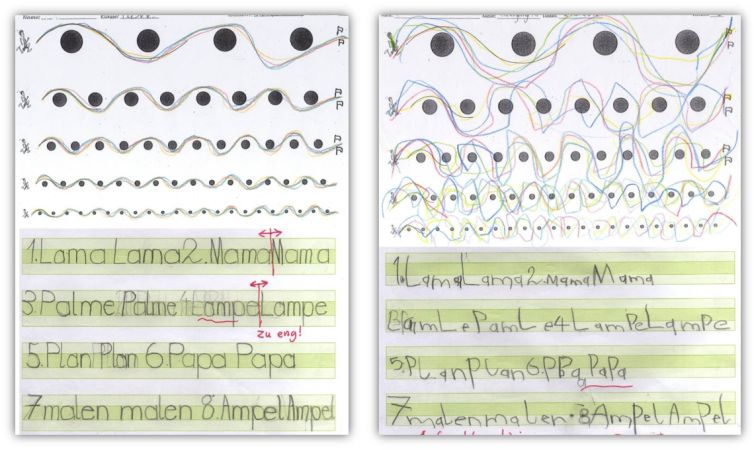 1. Lama Lama 2. Mama Mama
3. Palme Palme 4. Lampe Lampe
zu eng!
5. Plan Plan 6. Papa Papa
7 malen malen 8. Ampel Ampel
1. Lama Lama 2. Mama Mama
PamLe PamLe 4 LamPe LamPe
5. PLan PLan 6. Papa
7 malen malen 8 AmPeL AmPeL